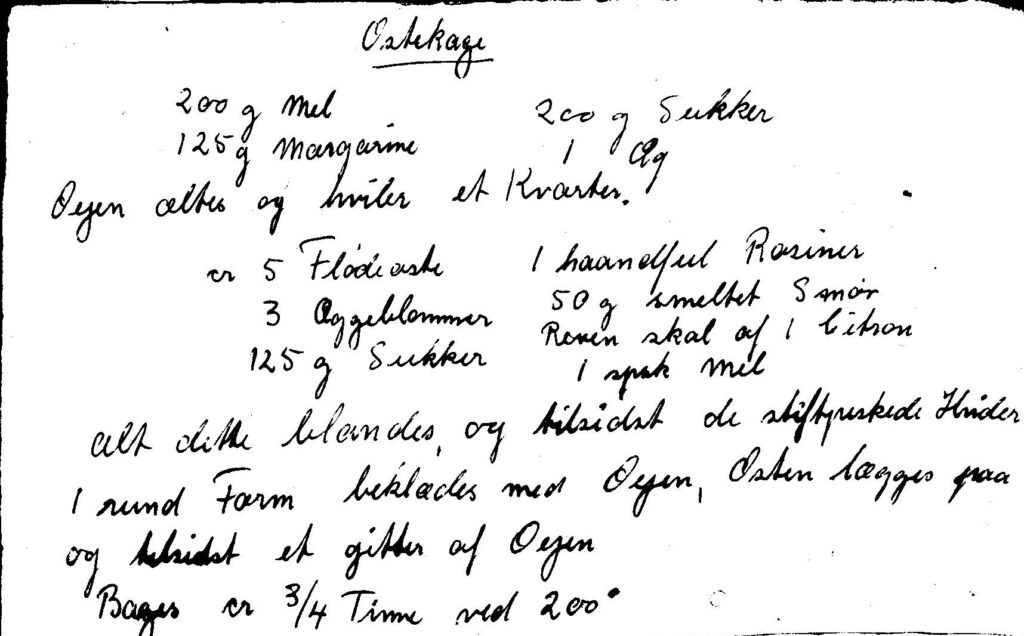 Ostekage
200 g Mel 200 g Sukker
125 g Margarine 1 Æg
Dejen æltes og hviler et Kvarter.
cr 5 Flødeoste 1 haandful Rosiner
3 Æggeblommer 50 g smeltet Smør
125 g Sukker Reven skal af 1 Citron
1 spsk Mel
alt dette blandes, og tilsidst de stiftpiskede Hvider
1 rund Form beklædes med Dejen, Osten lægges paa
og tilsidst et gitter af Dejen
Bages cr 3/4 Time ved 200°